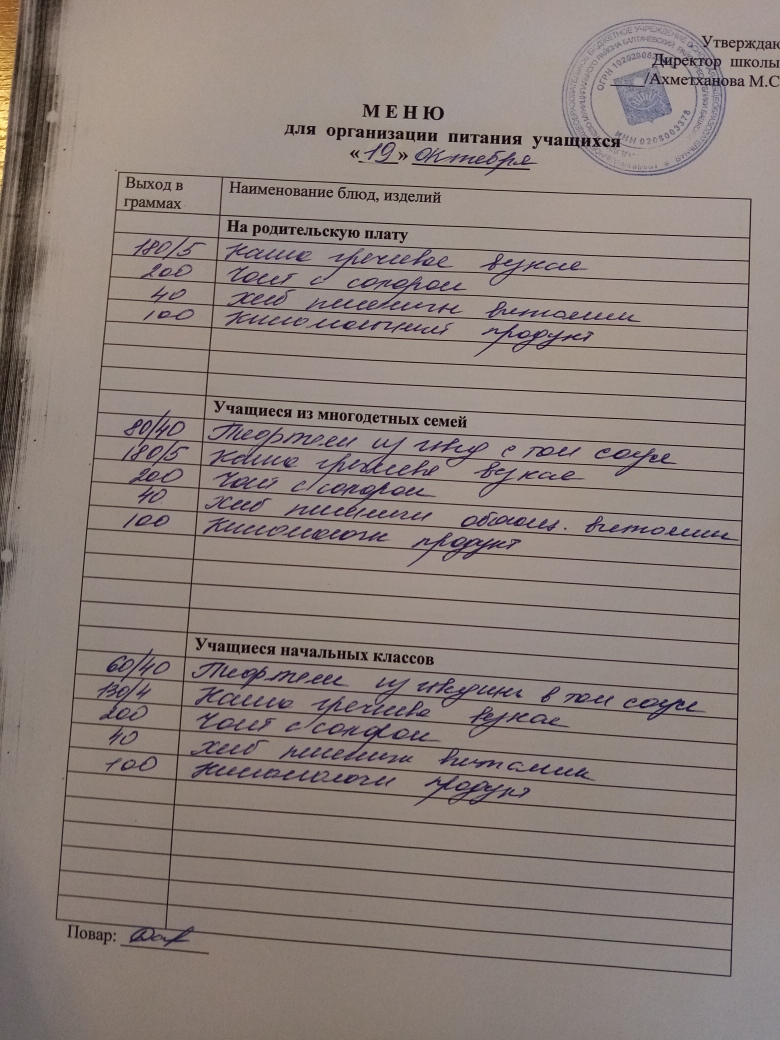 Утверждаю
Директор школы
/Ахметханова М.С
ОГРН 10202008
ИНН 0208003378
МЕНЮ
для организации питания учащихся
«19» октября
Выход в граммах Наименование блюд, изделий
На родительскую плату
180/5 Каша гречневая вязкая
200 Чай с сахаром
40 Хлеб пшеничный витамин
100 Кисломолочный продукт
Учащиеся из многодетных семей
80/40 Тефтели из говяд с том соусе
180/5 Каша гречнева вязкая
200 Чай с сахаром
40 Хлеб пшеничн обогащ. витамин
100 Кисломолочн продукт
Учащиеся начальных классов
60/40 Тефтели из говядины в том соусе
130/4 Каша гречнева вязкая
200 Чай с сахаром
40 Хлеб пшеничн витамин
100 Кисломолочн продукт
Повар: